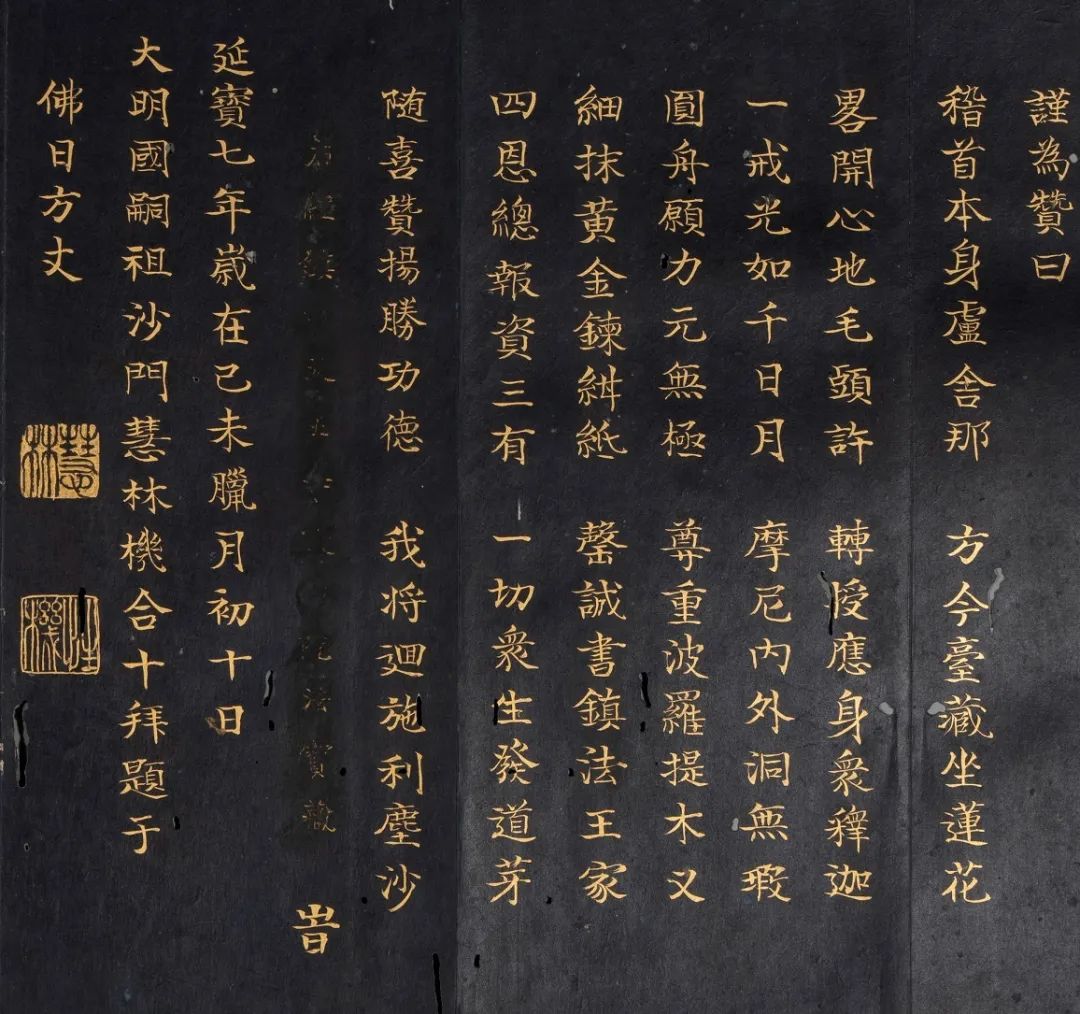 謹為贊曰
稽首本身盧舍那 方今臺藏坐蓮花
畧開心地毛頭許 轉授應身衆釋迦
一戒光如千日月 摩尼内外洞無瑕
圓舟願力元無極 尊重波羅提木叉
細抹黄金鍊紺紙 罄誠書鎮法王家
四恩總報資三有 一切衆生發道芽
随喜贊揚勝功德 我将廻施利塵沙
法寳藏 旹
延寶七年歲在己未臘月初十日
大明國嗣祖沙門慧林機合十拜題于
佛日方丈
慧林
性機